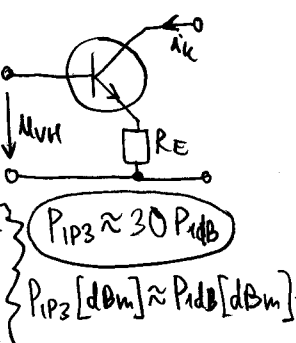 iк
uVH
RE
PIP3 ≈ 30 P1dB
PIP3 [dBm] ≈ P1dB [dBm]